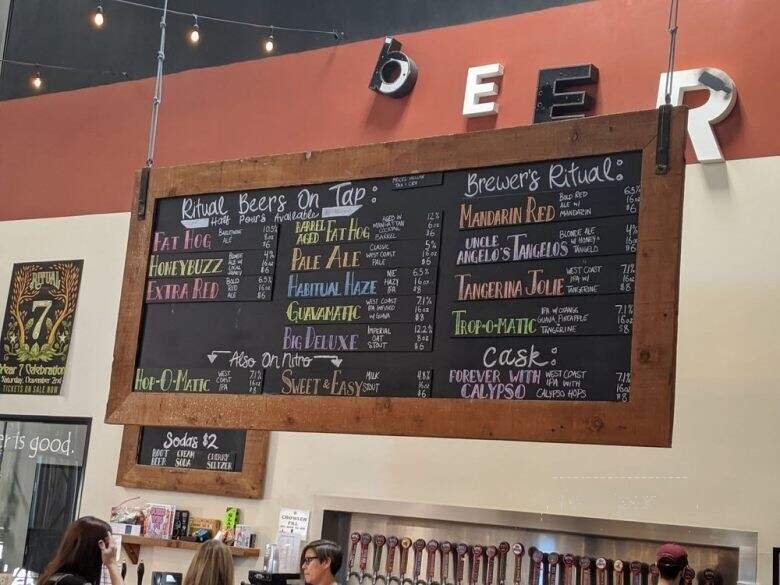 bEER
PRICES INCLUDE
TAX & CRV
Ritual Beers On Tap:
Half Pours Available
FAT HOG BARLEYWINE ALE 10.5% 8oz $6
HONEYBUZZ BLONDE ALE W/ LOCAL HONEY 4% 16oz $6
EXTRA RED BOLD RED ALE 6.5% 16oz $8
BARREL AGED FAT HOG AGED IN MANHATTAN COCKTAIL BARREL 12% 6oz $8
PALE ALE CLASSIC WEST COAST PALE 5% 16oz $6
HABITUAL HAZE NE HAZY IPA 6.5% 16oz $8
GUAVAMATIC WEST COAST IPA INFUSED W/ GUAVA 7.1% 16oz $8
BIG DELUXE IMPERIAL OAT STOUT 12.2% 8oz $6
Also On Nitro
HOP-O-MATIC WEST COAST IPA 7.1% 16oz $8
SWEET & EASY MILK STOUT 4.8% 16oz $6
Brewer's Ritual:
MANDARIN RED BOLD RED ALE W/ MANDARIN 6.5% 16oz $8
UNCLE ANGELO'S TANGELOS BLONDE ALE W/ HONEY & TANGELO 4% 16oz $6
TANGERINA JOLIE WEST COAST IPA W/ TANGERINE 7.1% 16oz $8
TROP-O-MATIC IPA W/ ORANGE GUAVA, PINEAPPLE TANGERINE 7.1% 16oz $8
Cask:
FOREVER WITH CALYPSO WEST COAST IPA WITH CALYPSO HOPS 7.1% 16oz $8
RITUAL
7
Year 7 Celebration
Saturday, December 2nd
TICKETS ON SALE NOW
er is good.
Sodas $2
ROOT BEER
CREAM SODA
CHERRY SELTZER
CROWLER
FILL